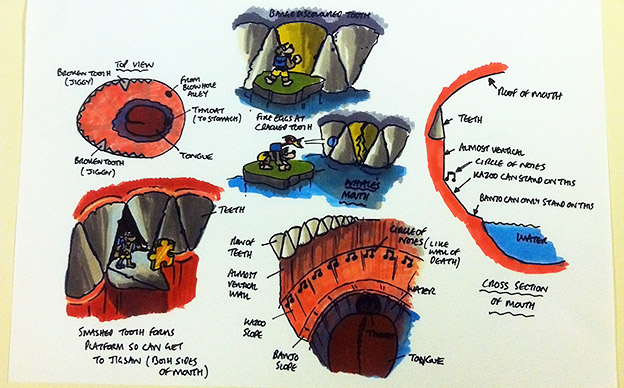 BARGE DISCOLOURED TOOTH
TOP VIEW
BROKEN TOOTH
(JIGGY)
FROM
BLOWHOLE
ALLEY
THROAT
(TO STOMACH)
TONGUE
BROKEN TOOTH
(JIGGY)
FIRE EGGS AT
CRACKED TOOTH
WHALE'S
MOUTH
ROOF OF MOUTH
TEETH
ALMOST
VERTICAL
CIRCLE OF NOTES
KAZOO CAN STAND ON THIS
BANJO CAN ONLY STAND ON THIS
WATER
CROSS SECTION
OF MOUTH
TEETH
SMASHED TOOTH FORMS
PLATFORM SO CAN GET
TO JIGSAW (BOTH SIDES
OF MOUTH)
ROW OF
TEETH
ALMOST
VERTICAL
WALL
KAZOO
SLOPE
BANJO
SLOPE
CIRCLE OF
NOTES (LIKE
WALL OF
DEATH)
WATER
THROAT
TONGUE